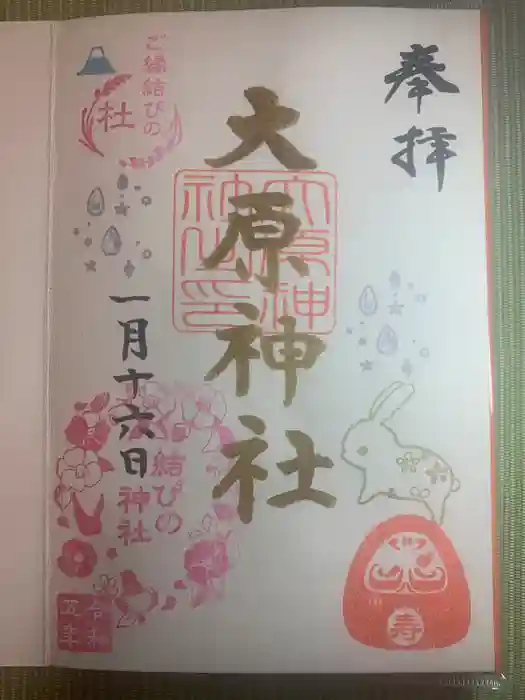 奉拝
大原神社
大原神社之印
ご縁結びの
社
一月十六日
結びの
神社
令和
五年
寿